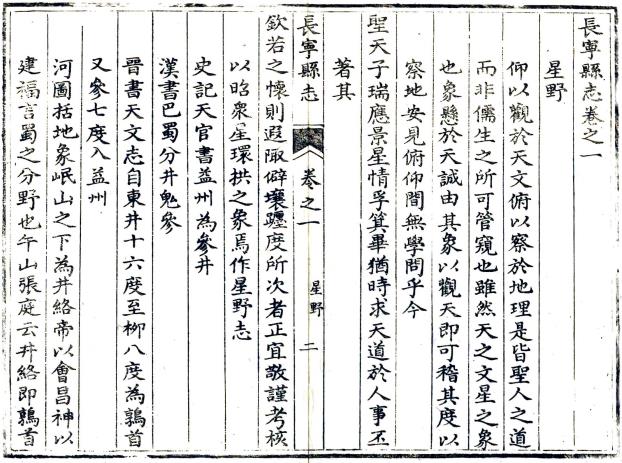 長寧縣志卷之一
星野
仰以觀於天文俯以察於地理是皆聖人之道
而非儒生之所可管窺也雖然天之文星之象
也象懸於天誠由其象以觀天即可稽其度以
察地安見俯仰間無學問乎今
聖天子瑞應景星情孚箕畢猶時求天道於人事丕
著其
長寧縣志
卷之一
星野
二
欽若之懷則遐陬僻壤躔度所次者正宜敬謹考核
以昭衆星環拱之象焉作星野志
史記天官書益州為參井
漢書巴蜀分井鬼參
晉書天文志自東井十六度至柳八度為鶉首
又參七度入益州
河圖括地象岷山之下為井絡帝以會昌神以
建福言蜀之分野也午山張庭云井絡即鶉首